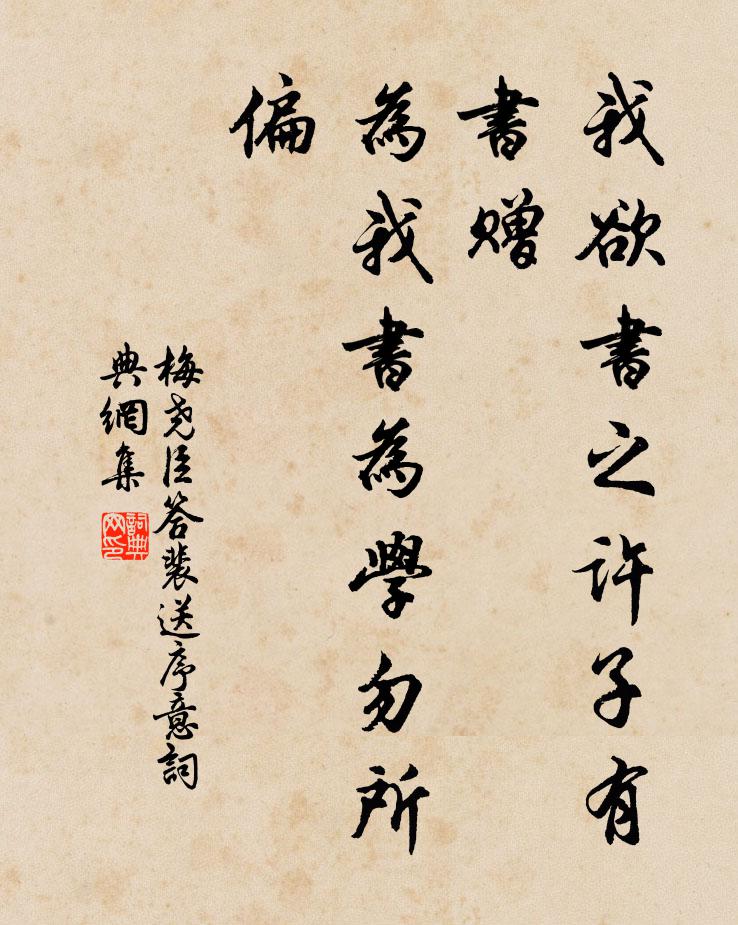 我欲書之許子有
書贈
為我書為學勿所
偏
梅堯臣答裴送序意詞
典網集
詞典
网印